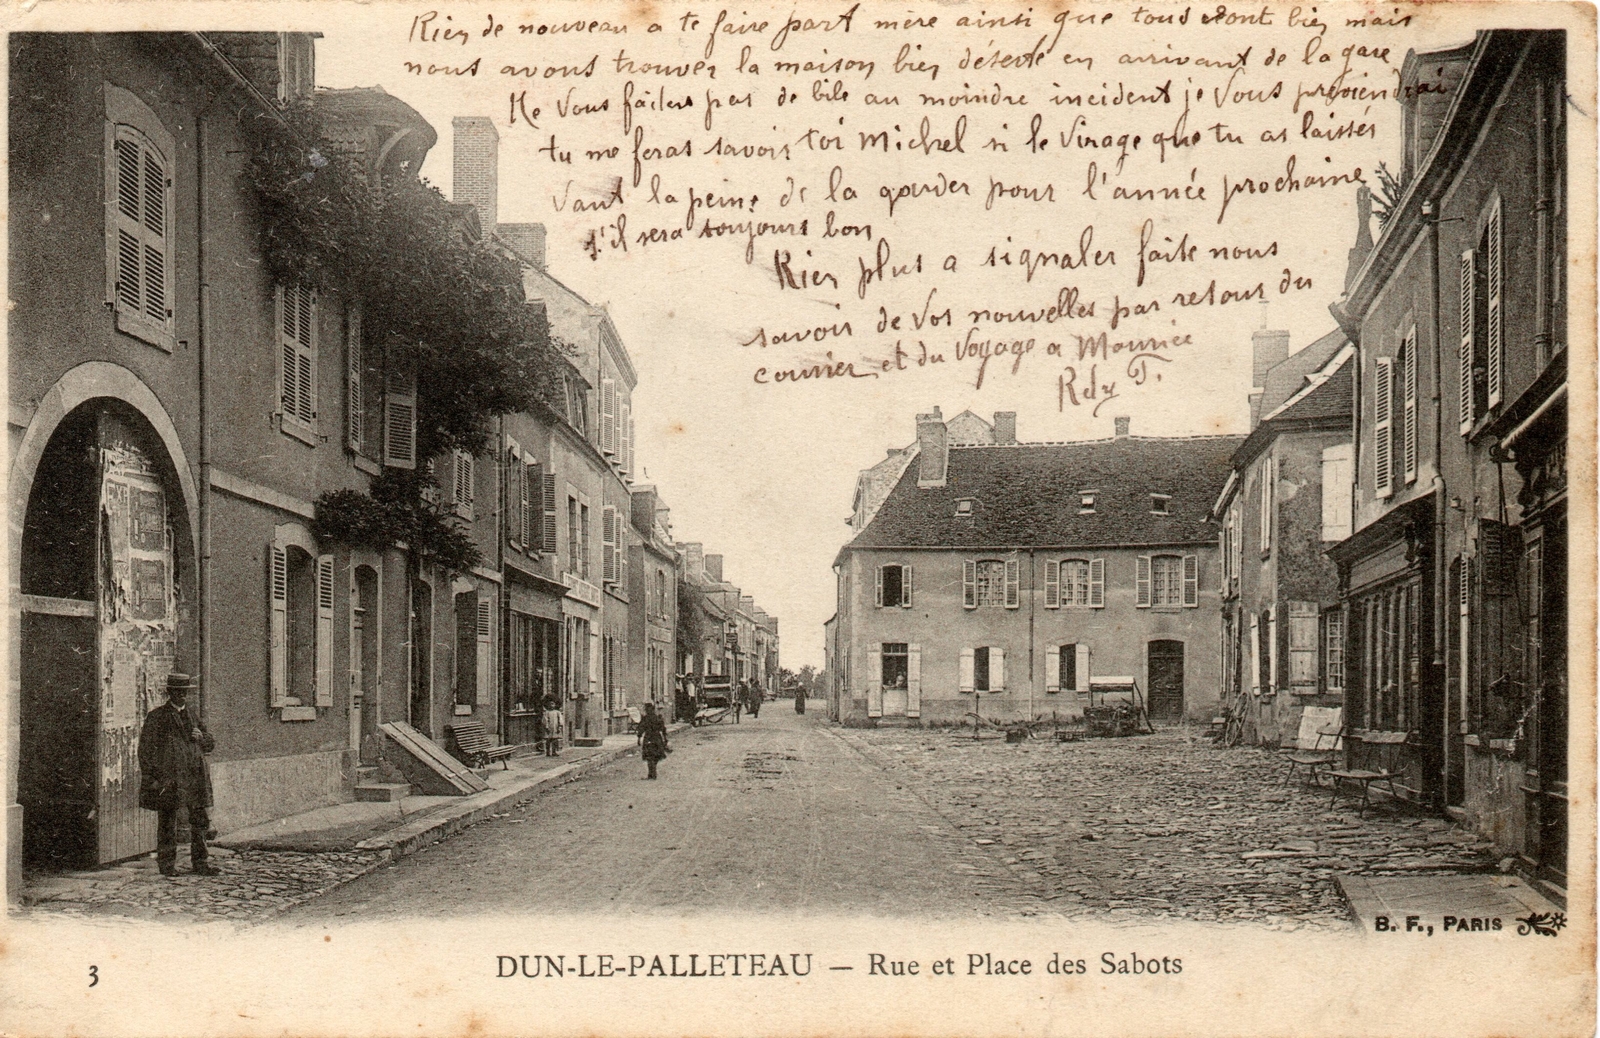 Rien de nouveau a te faire part mère ainsi que tous vont bien mais
nous avons trouver la maison bien déserte en arrivant de la gare
Ne Vous faites pas de bile au moindre incident je Vous previendrai
tu me feras savoir toi Michel si le Virage que tu as laissés
Vaut la peine de la garder pour l'année prochaine
s'il sera toujours bon
Rien plus a signaler faite nous
savoir de Vos nouvelles par retour du
courrier et du Voyage a Maurice
T.
B. F., PARIS
3
DUN-LE-PALLETEAU — Rue et Place des Sabots